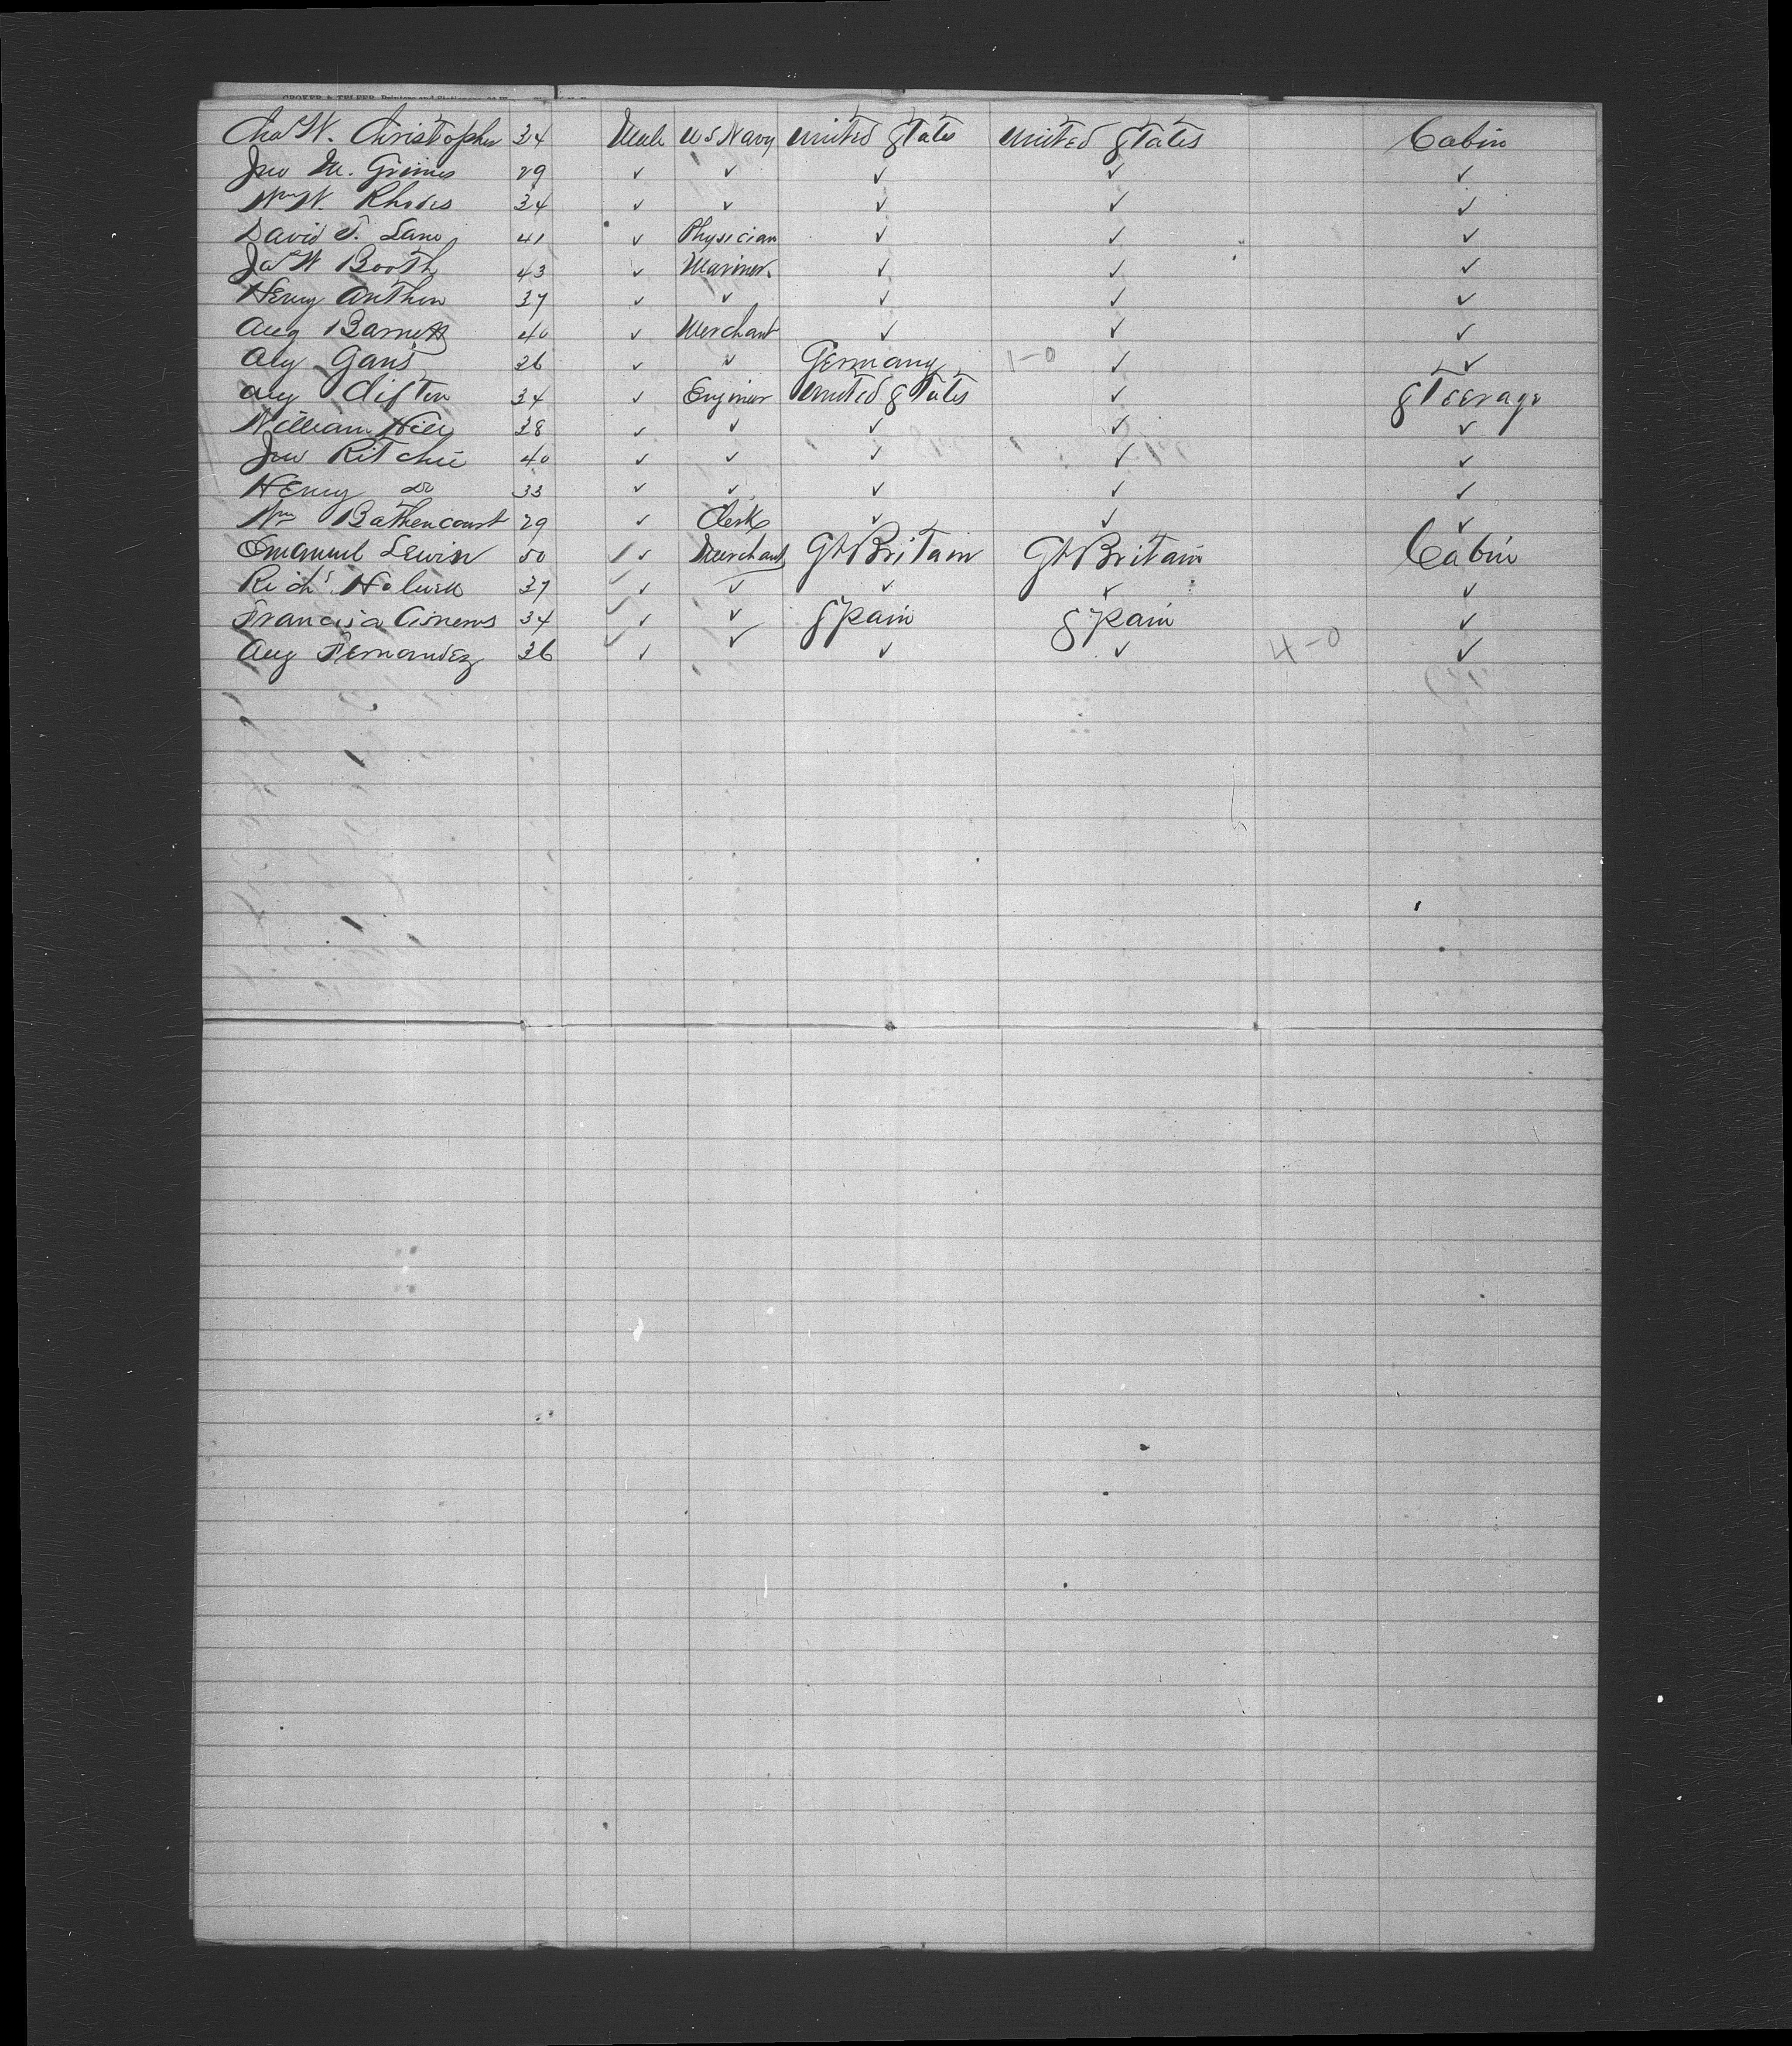 Chas W. Christopher 34 Male U S Navy United States United States Cabin
Jno M. Grimes 29 ✓ ✓ ✓ ✓ ✓
Wm W. Rhodes 34 ✓ ✓ ✓ ✓ ✓
David T. Lane 41 ✓ Physician ✓ ✓ ✓
Jas W Booth 43 ✓ Mariner ✓ ✓ ✓
Henry Anthon 37 ✓ ✓ ✓ ✓ ✓
Aug Barnett 40 ✓ Merchant ✓ ✓ ✓
Alex Gans 26 ✓ ✓ Germany 1-0 ✓ ✓
Aug Clifton 34 ✓ Engineer United States ✓ Steerage
William Hill 38 ✓ ✓ ✓ ✓ ✓
Jno Ritchie 40 ✓ ✓ ✓ ✓ ✓
Henry do 33 ✓ ✓ ✓ ✓ ✓
Wm Bathencourt 29 ✓ Clerk ✓ ✓ ✓
Emanuel Lewin 50 ✓ Merchant Gt Britain Gt Britain Cabin
Richd 37 ✓ ✓ ✓ ✓ ✓
Francisco Cisneros 34 ✓ ✓ Spain Spain ✓
Aug Fernandez 36 ✓ ✓ ✓ ✓ 4-0 ✓